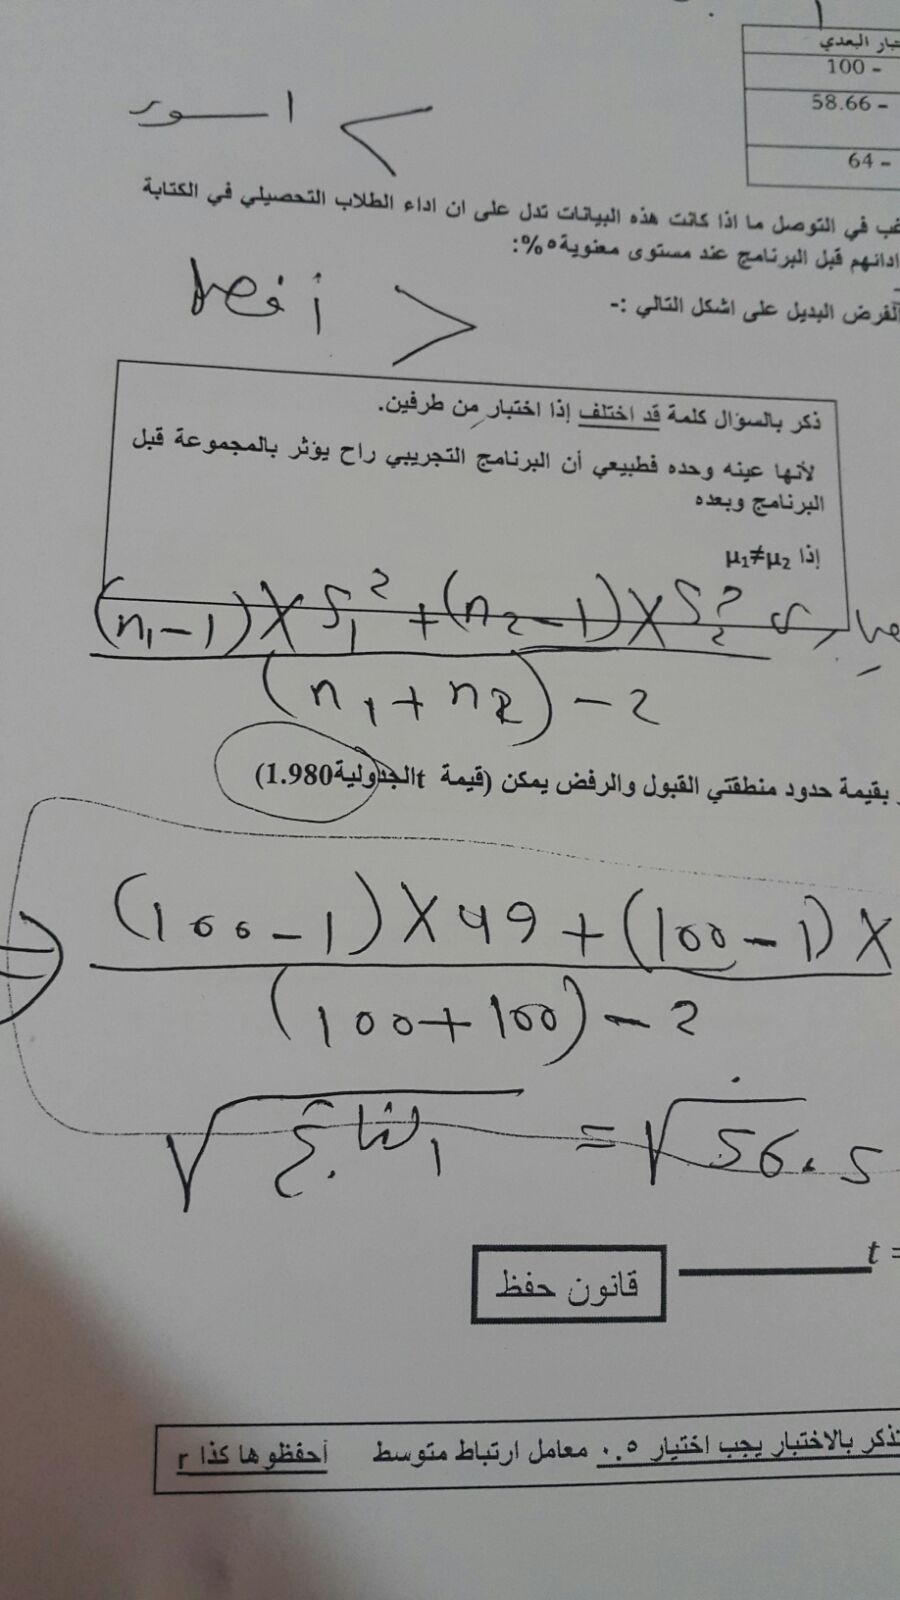 البعدي
100 -
58.66 -
64 -
في التوصل ما اذا كانت هذه البيانات تدل على ان اداء الطلاب التحصيلي في الكتابة
ادائهم قبل البرنامج عند مستوى معنوية ٥%:
الفرض البديل على اشكل التالي :-
ذكر بالسؤال كلمة قد اختلف إذا اختبار من طرفين.
لأنها عينه وحده فطبيعي أن البرنامج التجريبي راح يؤثر بالمجموعة قبل
البرنامج وبعده
إذا μ₁≠μ₂
(n₁-1)×S₁²+(n₂-1)×S₂²
(n₁+n₂)-2
بقيمة حدود منطقتي القبول والرفض يمكن (قيمة t الجدولية 1.980)
(100-1)×49+(100-1)×
(100+100)-2
√الناتج = √56.5
t =
قانون حفظ
بالاختبار يجب اختيار ٠.٥ معامل ارتباط متوسط أحفظوها كذا r